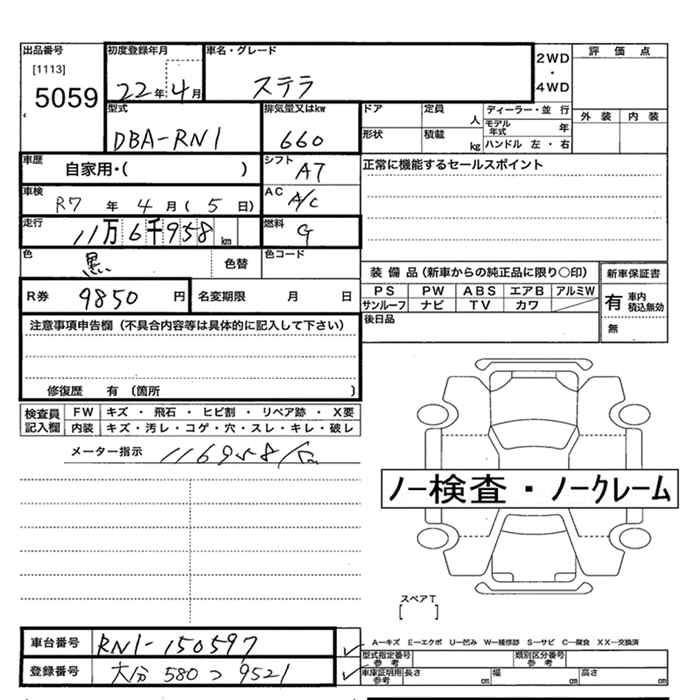 出品番号
[1113]
5059
初度登録年月
22年4月
車名・グレード
ステラ
2WD
・
4WD
評価点
外装 内装
型式
DBA-RN1
排気量又はkw
660
ドア
定員 人
ディーラー・並行
モデル年式 年
形状
積載 kg
ハンドル 左・右
車歴
自家用・( )
シフト
A7
正常に機能するセールスポイント
車検
R7年4月(5日)
AC
A/C
走行
11万6千958km
燃料
G
色
黒
色替
色コード
装備品(新車からの純正品に限り○印)
新車保証書
PS PW ABS エアB アルミW
サンルーフ ナビ TV カワ
有 車内積込無効
無
R券
9850円
名変期限 月 日
後日品
注意事項申告欄(不具合内容等は具体的に記入して下さい)
修復歴 有(箇所 )
検査員記入欄
FW キズ・飛石・ヒビ割・リペア跡・X要
内装 キズ・汚レ・コゲ・穴・スレ・キレ・破レ
メーター指示
116958km
ノー検査・ノークレーム
スペアT
[ ]
車台番号
RN1-150597
A-キズ E-エクボ U-凹み W-補修跡 S-サビ C-腐食 XX-交換済
型式指定番号 参考
類別区分番号 参考
登録番号
大分 580 つ 9521
車庫証明用 参考
長さ cm 幅 cm 高さ cm